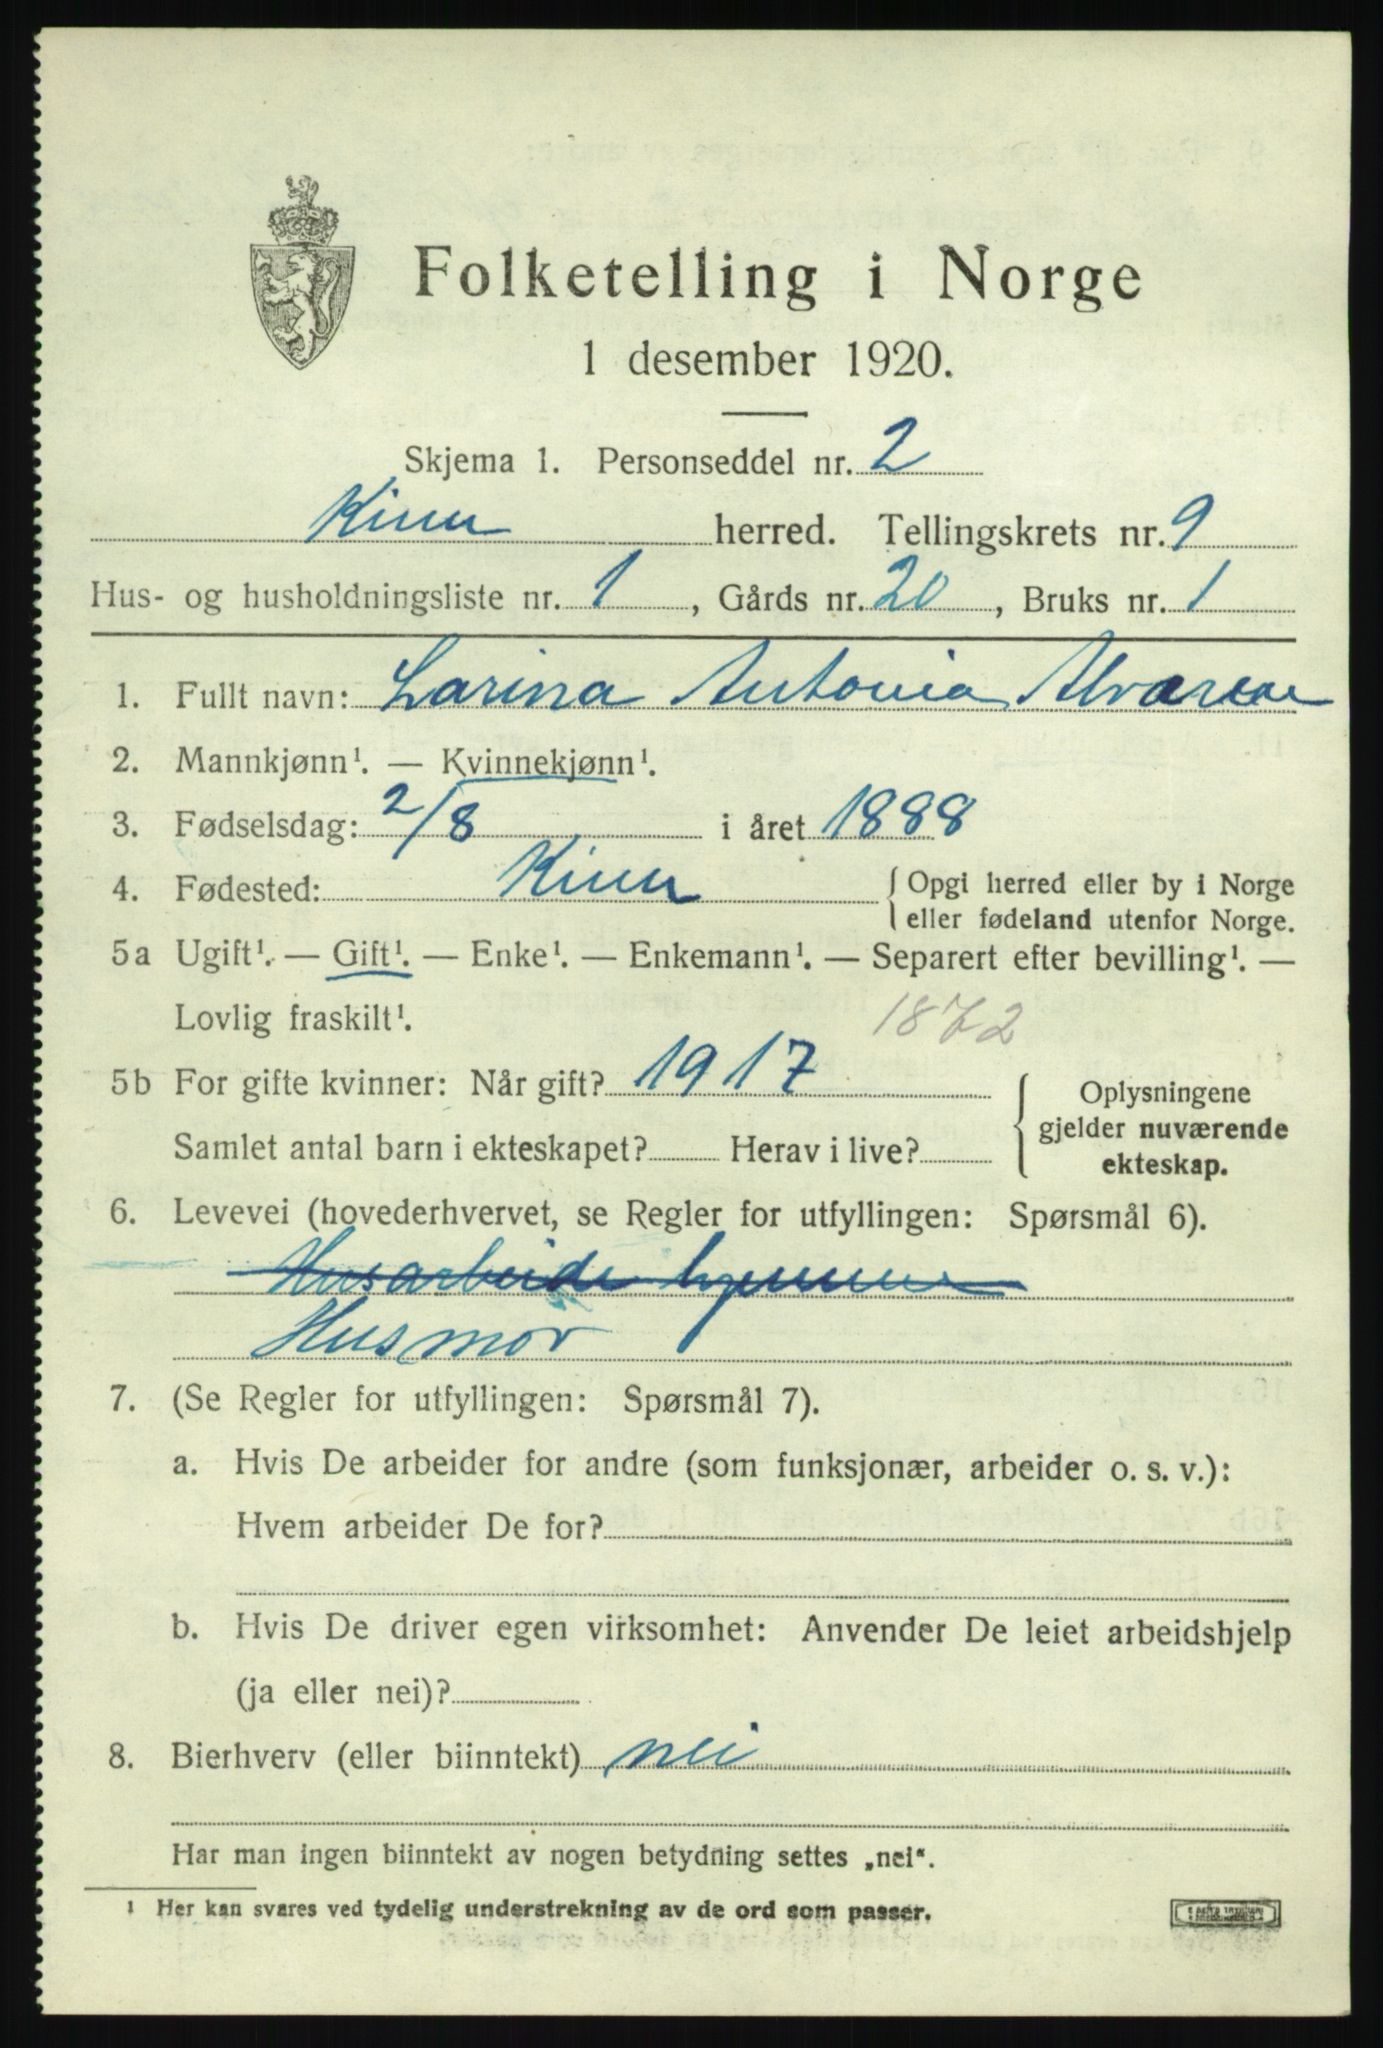 Folketelling i Norge
1 desember 1920.
Skjema 1. Personseddel nr. 2
Kinn herred. Tellingskrets nr. 9
Hus- og husholdningsliste nr. 1, Gårds nr. 20, Bruks nr. 1
1. Fullt navn: Larina Antonia
2. Mannkjønn¹. — Kvinnekjønn¹.
3. Fødselsdag: 2/8 i året 1888
4. Fødested: Kinn {Opgi herred eller by i Norge
eller fødeland utenfor Norge.
5a Ugift¹. — Gift¹. — Enke¹. — Enkemann¹. — Separert efter bevilling¹. —
Lovlig fraskilt¹. 1872
5b For gifte kvinner: Når gift? 1917 { Oplysningene
gjelder nuværende
Samlet antal barn i ekteskapet? Herav i live?
ekteskap.
6. Levevei (hovederhvervet, se Regler for utfyllingen: Spørsmål 6).
Husarbeide hjemme
Husmor
7. (Se Regler for utfyllingen: Spørsmål 7).
a. Hvis De arbeider for andre (som funksjonær, arbeider o. s. v.):
Hvem arbeider De for?
b. Hvis De driver egen virksomhet: Anvender De leiet arbeidshjelp
(ja eller nei)?
8. Bierhverv (eller biinntekt) nei
Har man ingen biinntekt av nogen betydning settes „nei“.
¹ Her kan svares ved tydelig understrekning av de ord som passer.